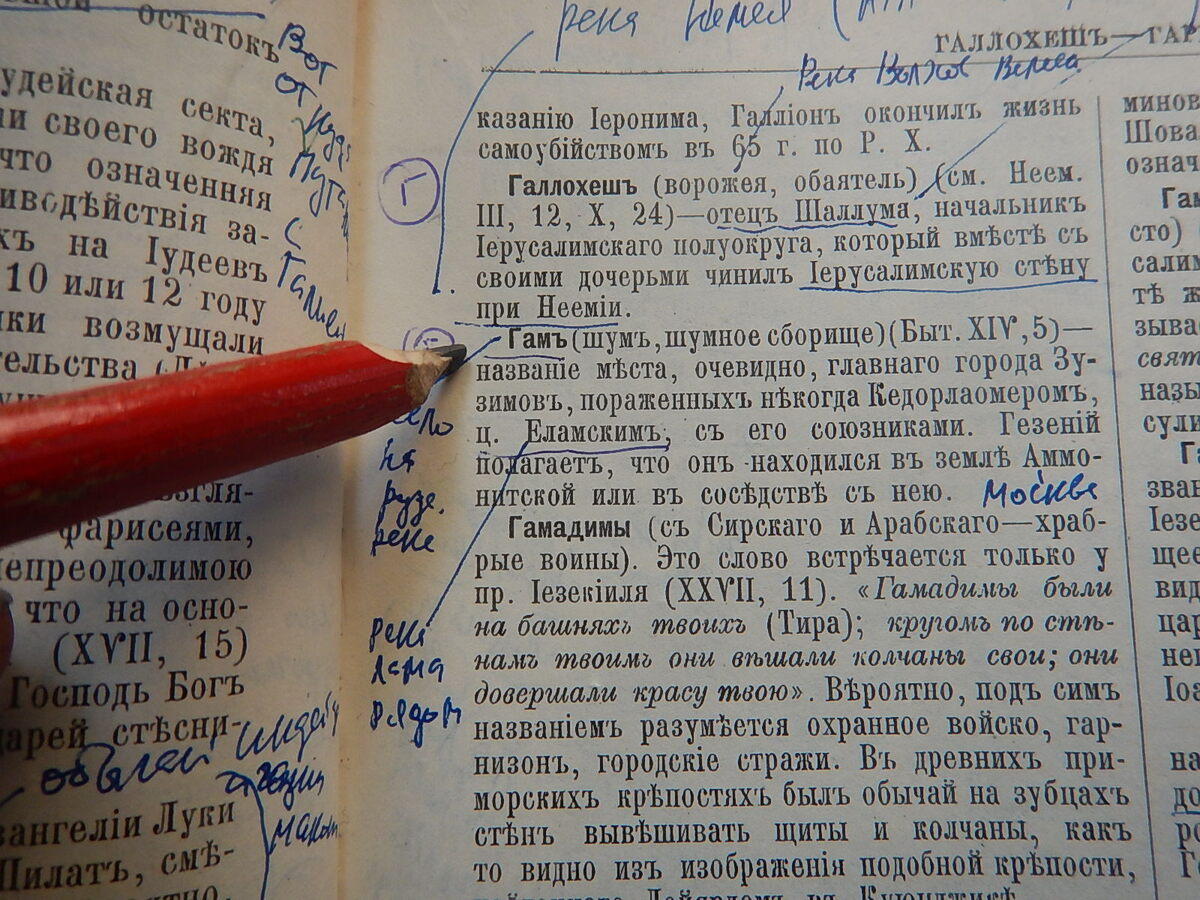 остатокъ
удейская секта,
ми своего вождя
что означенняя
иводѣйствія за-
хъ на Іудеевъ
10 или 12 году
ки возмущали
тельства
фарисеями,
непреодолимою
что на осно-
(XVII, 15)
Господь Богъ
царей стѣсни-
обычай
вангеліи Луки
Пилатъ, смѣ-
Вот
откуда
с
река Немея
ГАЛЛОХЕШЪ—ГАР
Река Волхов
казанію Іеронима, Галліонъ окончилъ жизнь
самоубійствомъ въ 65 г. по Р. Х.
Г
Галлохешъ (ворожея, обаятель) (см. Неем.
III, 12, X, 24)—отецъ Шаллума, начальникъ
Іерусалимскаго полуокруга, который вмѣстѣ съ
своими дочерьми чинилъ Іерусалимскую стѣну
при Нееміи.
Гамъ (шумъ, шумное сборище) (Быт. XIV, 5)—
названіе мѣста, очевидно, главнаго города Зу-
зимовъ, пораженныхъ нѣкогда Кедорлаомеромъ,
ц. Еламскимъ, съ его союзниками. Гезеній
полагаетъ, что онъ находился въ землѣ Аммо-
нитской или въ сосѣдствѣ съ нею. Москве
Гамадимы (съ Сирскаго и Арабскаго—храб-
рые воины). Это слово встрѣчается только у
пр. Іезекіиля (XXVII, 11). «Гамадимы были
на башняхъ твоихъ (Тира); кругомъ по стѣ-
намъ твоимъ они вѣшали колчаны свои; они
довершали красу твою». Вѣроятно, подъ симъ
названіемъ разумѣется охранное войско, гар-
низонъ, городскіе стражи. Въ древнихъ при-
морскихъ крѣпостяхъ былъ обычай на зубцахъ
стѣнъ вывѣшивать щиты и колчаны, какъ
то видно изъ изображенія подобной крѣпости,
на
рузе.
реке
река
лама
рядом
минов
Шова
означ
Гам
сто)
салим
тѣ ж
зыва
свят
назы
сули
зван
Іезе
щее
вид
цар
нег
Іоа
на
до